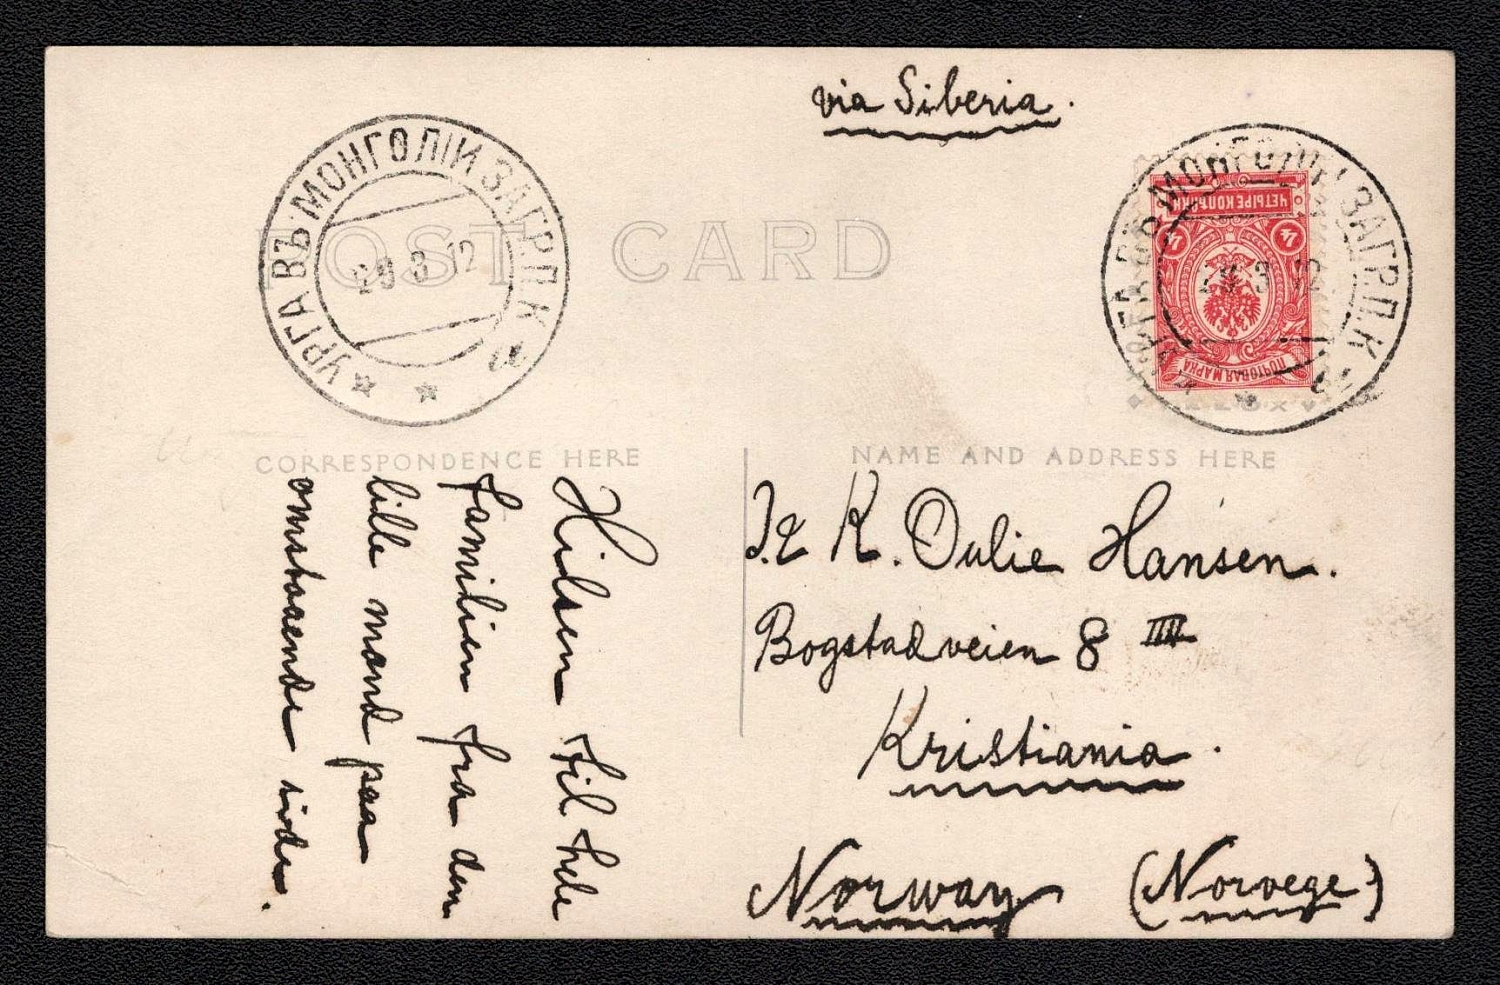 via Siberia.
УРГА ВЪ МОНГОЛІИ ЗАГР.П.К. а
3 12
POST CARD
ЧЕТЫРЕ КОПѢЙКИ
4 4
ПОЧТОВАЯ МАРКА
УРГА ВЪ МОНГОЛІИ ЗАГР.П.К.
3 12
CORRESPONDENCE HERE
NAME AND ADDRESS HERE
Hilsen til hele
familien fra den
lille mand paa
omstaaende side.
K. Oulie Hansen.
Bogstadveien 8 III
Kristiania.
Norway (Norvege)